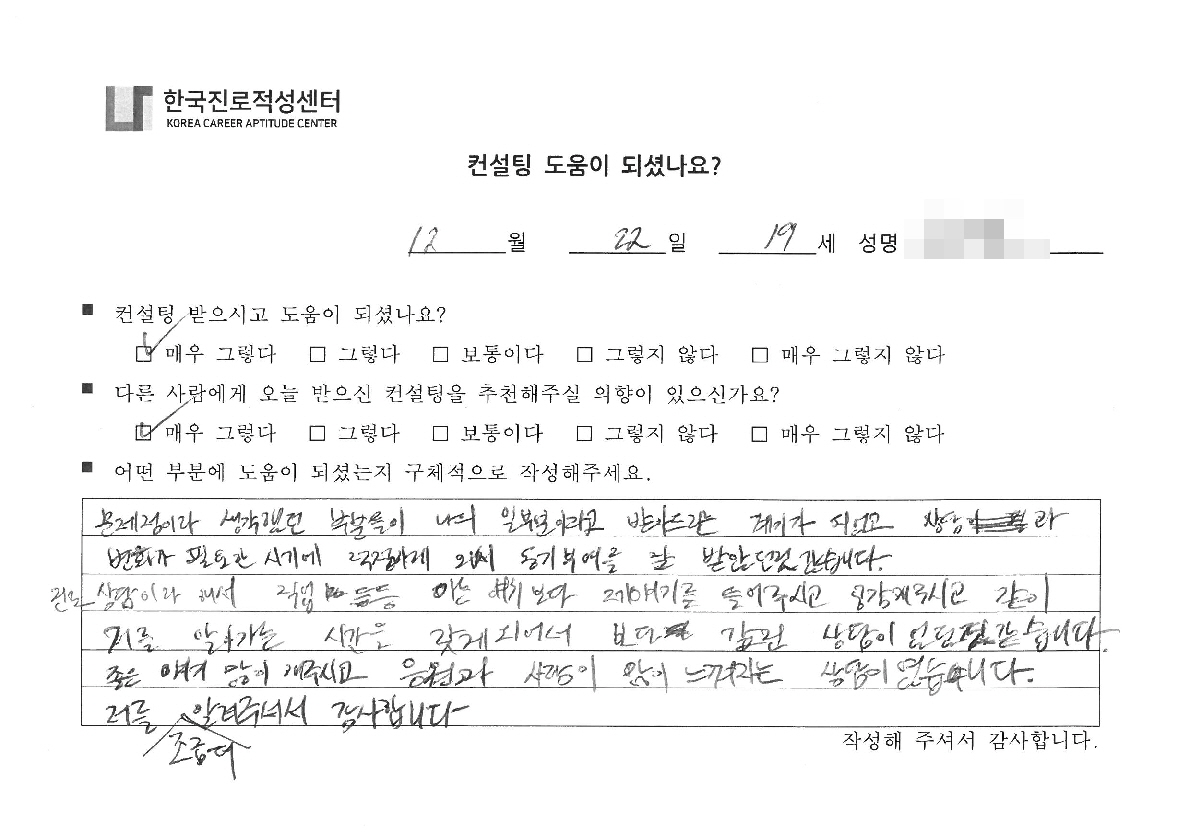 한국진로적성센터
KOREA CAREER APTITUDE CENTER
컨설팅 도움이 되셨나요?
12 월 22 일 19 세 성명
■ 컨설팅 받으시고 도움이 되셨나요?
☑ 매우 그렇다 □ 그렇다 □ 보통이다 □ 그렇지 않다 □ 매우 그렇지 않다
■ 다른 사람에게 오늘 받으신 컨설팅을 추천해주실 의향이 있으신가요?
☑ 매우 그렇다 □ 그렇다 □ 보통이다 □ 그렇지 않다 □ 매우 그렇지 않다
■ 어떤 부분에 도움이 되셨는지 구체적으로 작성해주세요.
문제점이라 생각했던 부분들이 나의 일부분이라고 받아드리는 계기가 되었고 상담과
변화가 필요한 시기에 동기부여를 잘 받았던것 같습니다.
진로 상담이라 해서 직업 등등 아는 얘기보다 제얘기를 들어주시고 생각해주시고 같이
저를 알아가는 시간을 갖게 되어서 보다 값진 상담이 었던것 같습니다.
좋은 얘기 많이 해주시고 응원과 사랑이 많이 느껴지는 상담이였습니다.
저를 조금더 알려주셔서 감사합니다
작성해 주셔서 감사합니다.